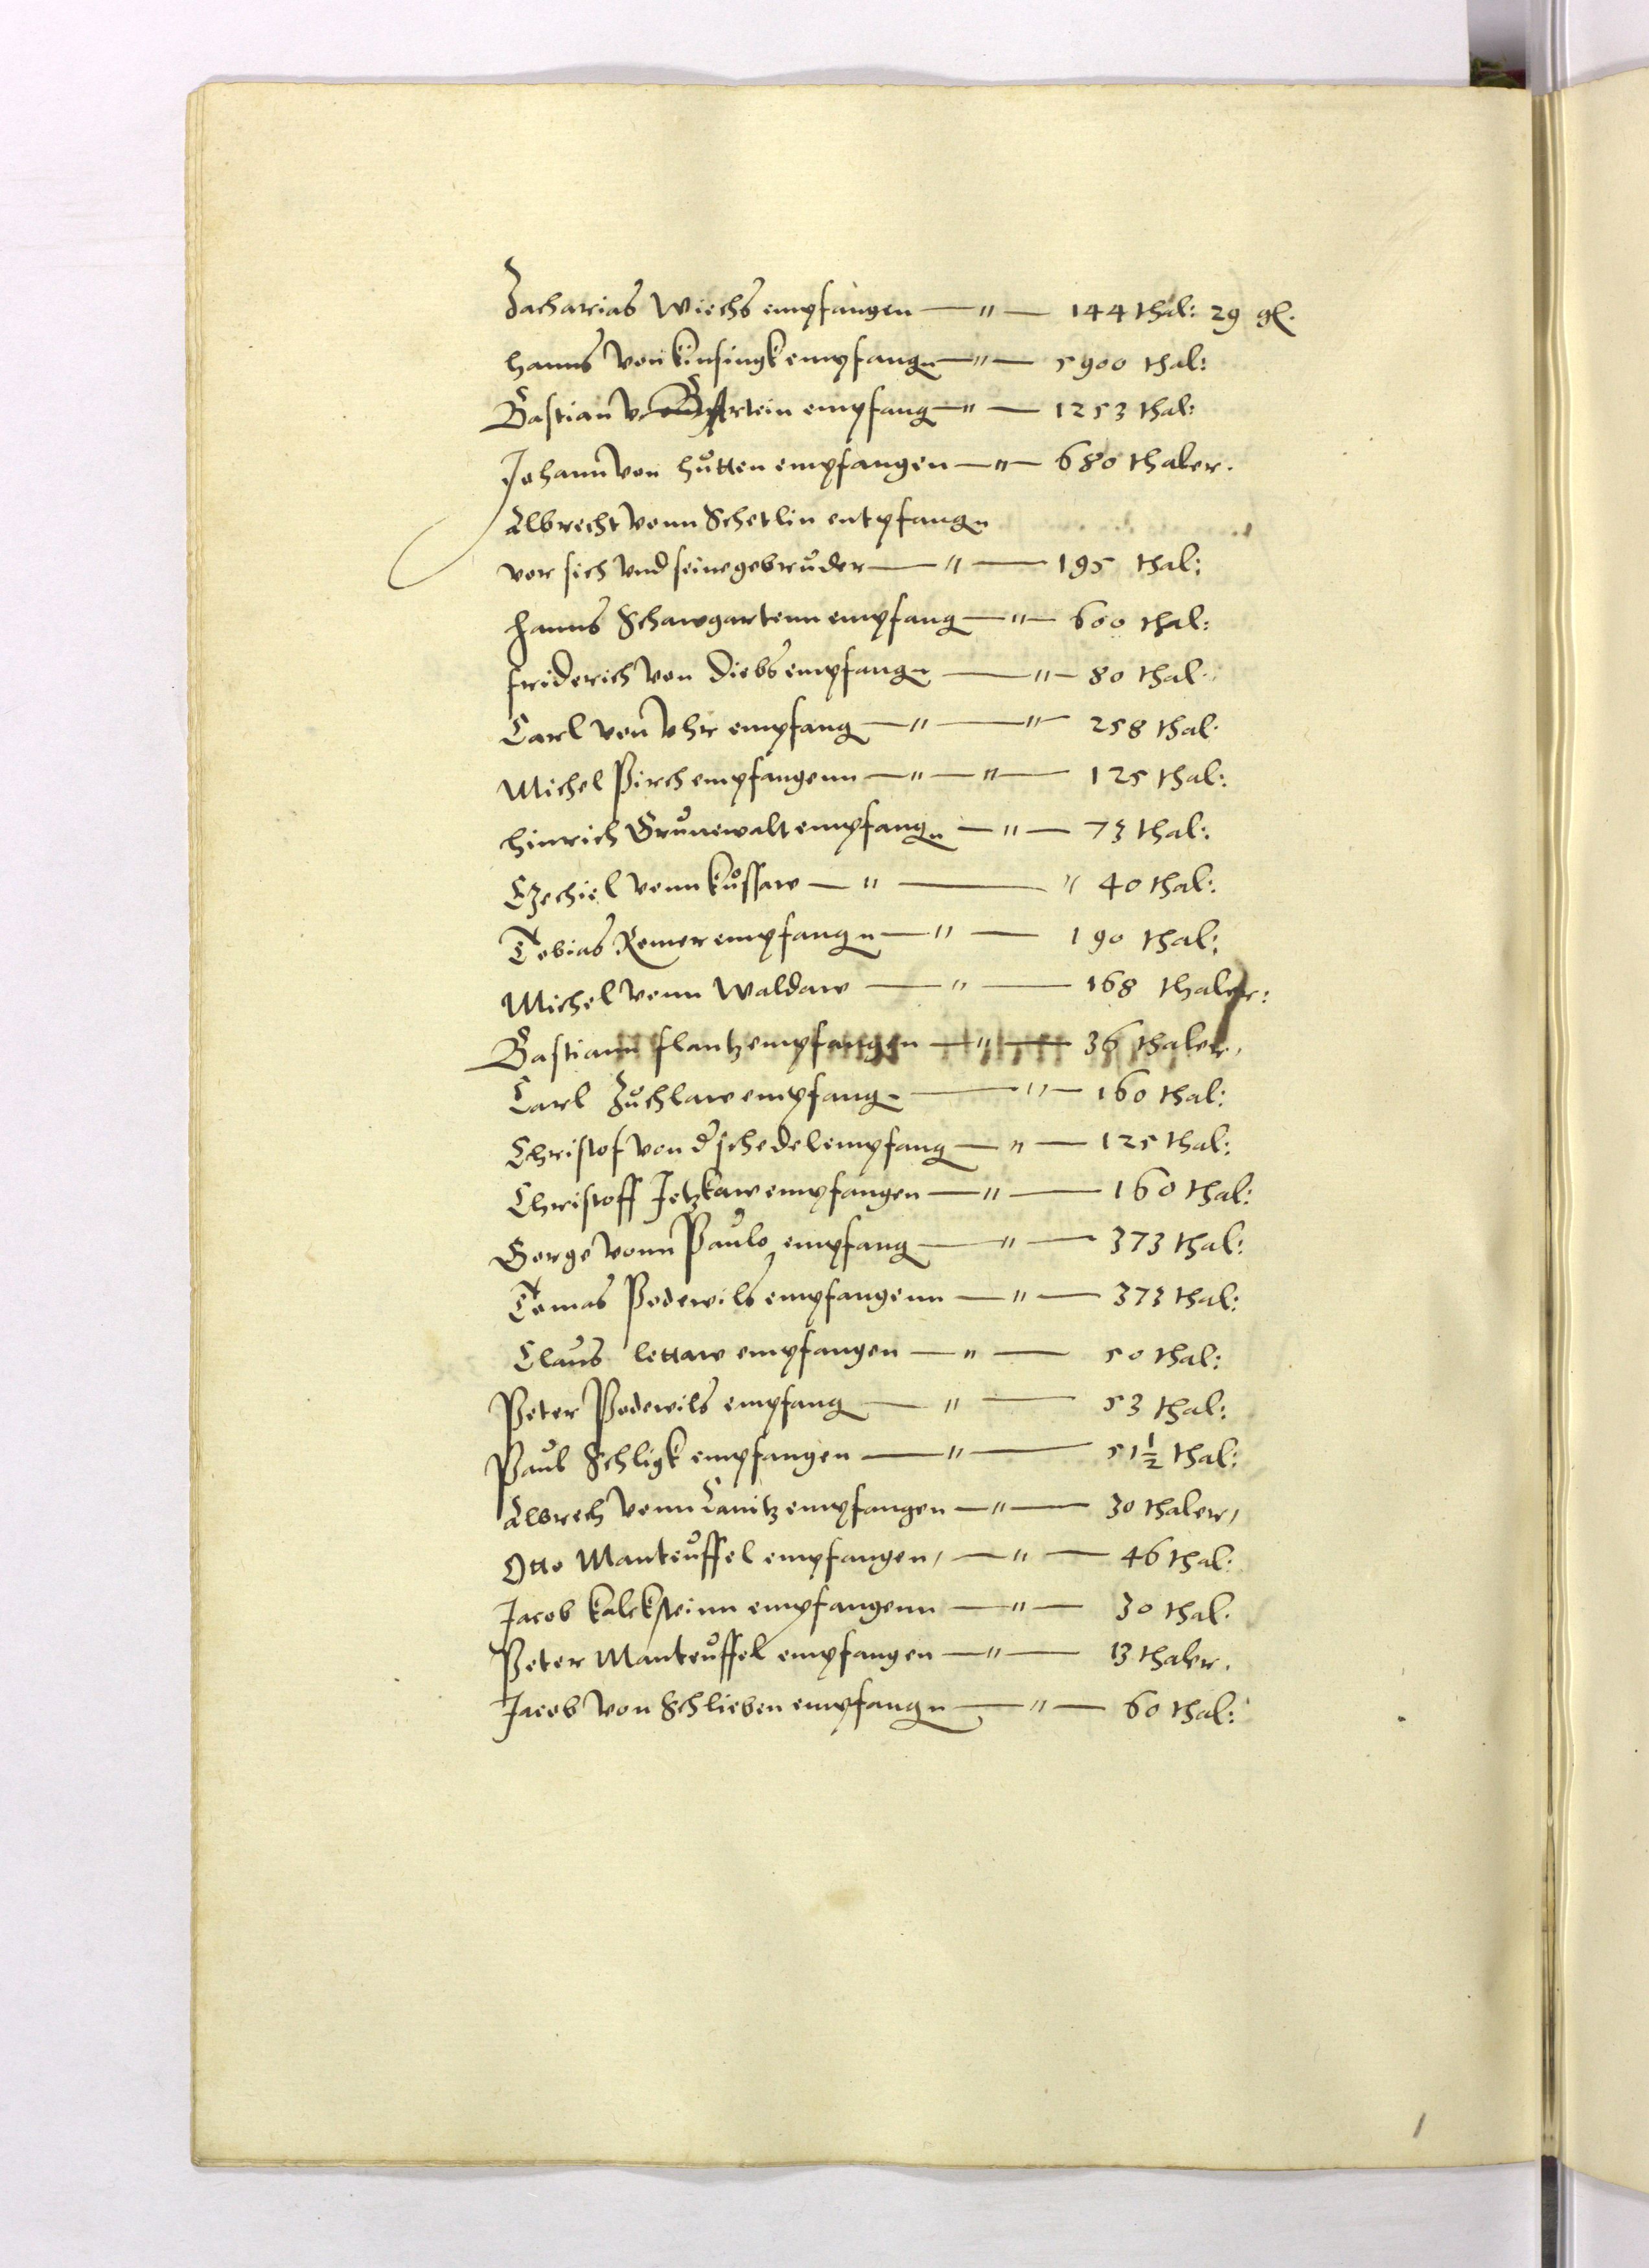 Zacharias Wiechs empfangen —"— 144 thal: 29 gl.
hanns von kinsingk empfang —"— 5900 thal:
Bastian empfang —"— 1253 thal:
Johann von hůtten empfangen —"— 680 thaler.
Albrecht vonn Schetlin entpfang
vor sich vnd seine gebrůder —"— 195 thal:
Hanns Schawgartenn empfang —"— 600 thal:
friderich von Diebs empfang —"— 80 thal.
Carl von Vhr empfang —"—"— 258 thal.
Michel Pirch empfangenn —"—"— 125 thal:
hinrich Grůnewalt empfang —"— 73 thal:
Ezechiel vonn kůssaw —"—" 40 thal:
Tobias Romer empfang —"— 190 thal:
Michel vonn Waldaw —"— 168 thaler:
Bastiann flantz empfangen —"— 36 thaler,
Carl Zůchlaw empfang —"— 160 thal:
Christof von d' schedel empfang —"— 125 thal:
Christoff Jetzkaw empfangen —"— 160 thal:
Gorge vonn empfang —"— 373 thal:
Tomas Podewils empfangenn —"— 373 thal:
Claůs lettaw empfangen —"— 50 thal:
Peter Podewils empfang —"— 53 thal:
Paůl Schligk empfangen —"— 51½ thal:
Albrech vonn Canitz empfangen —"— 30 thaler,
Otto Manteůffel empfangen, —"— 46 thal:
Jacob kalcksteinn empfangenn —"— 30 thal.
Peter Manteůffel empfangen —"— 13 thaler.
Jacob von Schlieben empfang —"— 60 thal: